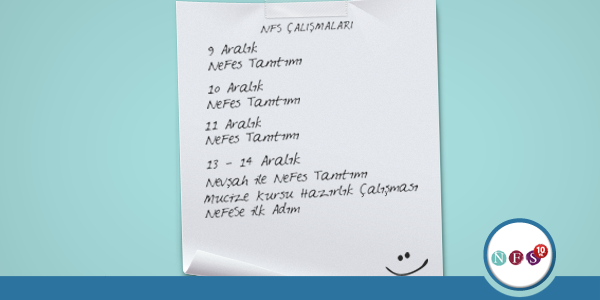 NFS ÇALIŞMALARI
9 Aralık
Nefes Tanıtımı
10 Aralık
Nefes Tanıtımı
11 Aralık
Nefes Tanıtımı
13 - 14 Aralık
Nevşah ile Nefes Tanıtımı
Mucize Kursu Hazırlık Çalışması
Nefese İlk Adım
NFS
10